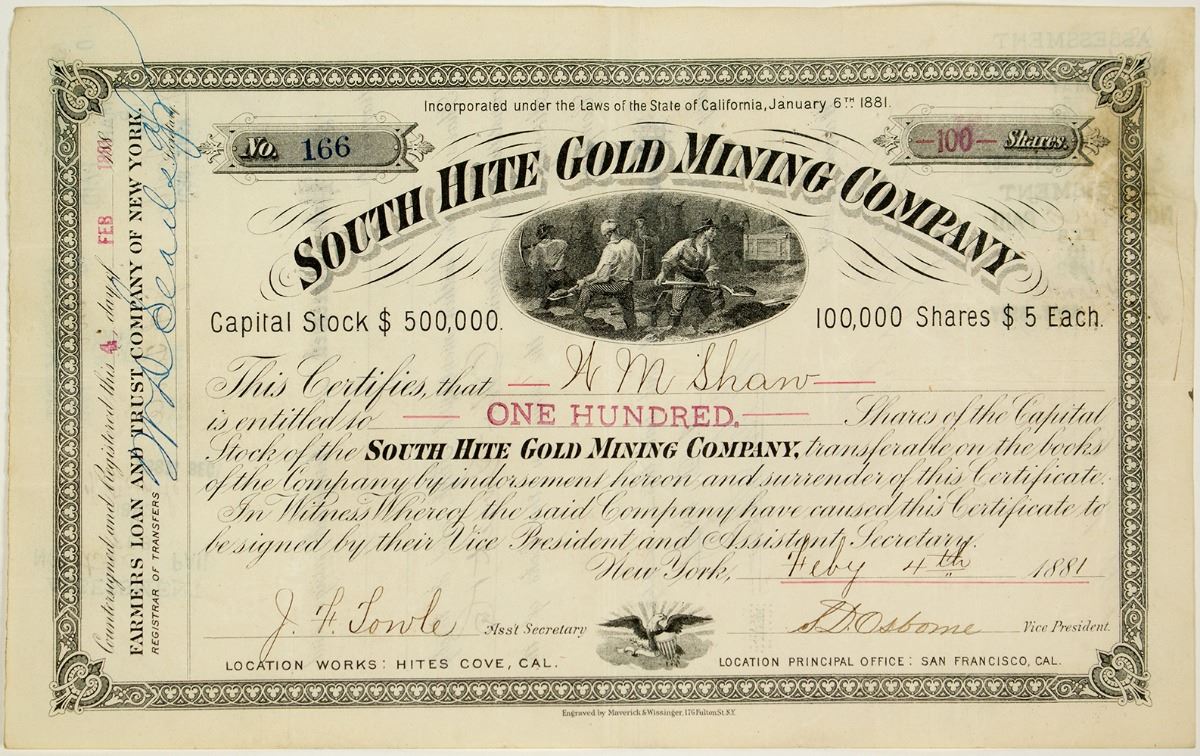 Incorporated under the Laws of the State of California, January 6TH 1881.
No. 166
—100— Shares.
SOUTH HITE GOLD MINING COMPANY
Capital Stock $ 500,000.
100,000 Shares $ 5 Each.
This Certifies, that — H M Shaw —
is entitled to — ONE HUNDRED. — Shares of the Capital
Stock of the SOUTH HITE GOLD MINING COMPANY, transferable on the books
of the Company by indorsement hereon and surrender of this Certificate.
In Witness Whereof the said Company have caused this Certificate to
be signed by their Vice President and Assistant Secretary.
New York, Feby 4th 1881
J. F. Towle Ass't Secretary
S. D. Osborne Vice President.
LOCATION WORKS: HITES COVE, CAL.
LOCATION PRINCIPAL OFFICE: SAN FRANCISCO, CAL.
Engraved by Maverick & Wissinger, 176 Fulton St. N.Y.
Countersigned and Registered this 4 day of FEB
FARMERS LOAN AND TRUST COMPANY OF NEW YORK.
REGISTRAR OF TRANSFERS
ASSESSMENT